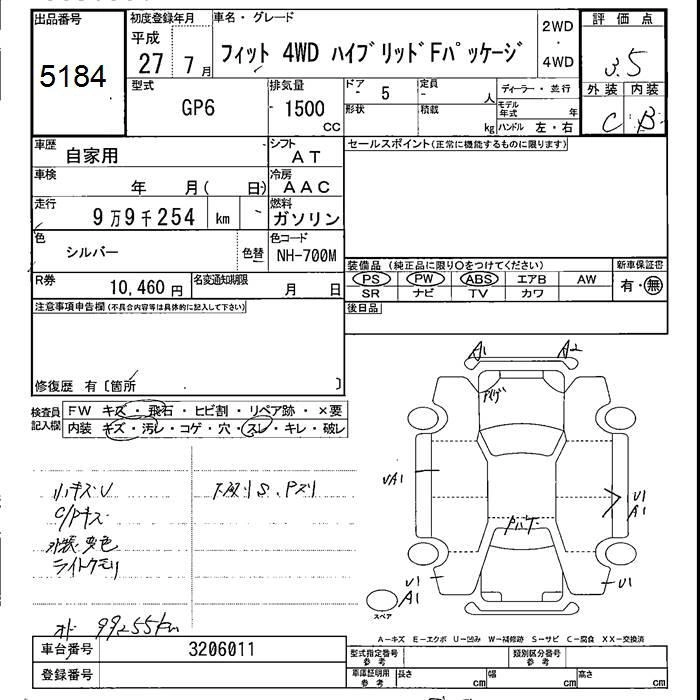 出品番号 5184
初度登録年月 平成 27 7月
車名・グレード フィット 4WD ハイブリッドFパッケージ
2WD ・ 4WD
評価点 3.5
外装 C 内装 B
型式 GP6
排気量 1500 CC
ドア 5
形状
定員 - 人
積載 kg
ディーラー・並行
モデル年式 年
ハンドル 左・右
車歴 自家用
シフト AT
セールスポイント(正常に機能するものに限ります)
車検 年 月( 日)
冷房 AAC
走行 9万9千254 km
燃料 ガソリン
色 シルバー
色替
色コード NH-700M
装備品(純正品に限り〇をつけてください)
新車保証書
PS PW ABS エアB AW 有・無
SR ナビ TV カワ
R券 10,460 円
名変通知期限 月 日
後日品
注意事項申告欄(不具合内容等は具体的に記入して下さい)
修復歴 有〔箇所 〕
検査員記入欄
FW キズ・飛石・ヒビ割・リペア跡・×要
内装 キズ・汚レ・コゲ・穴・スレ・キレ・破レ
A1 A2
UA1
U1
A1
U1
A1
U1
スペア
小キズU
C/Pキズ
外装変色
ライトクモリ
99255km
A-キズ E-エクボ U-凹み W-補修跡 S-サビ C-腐食 XX-交換済
車台番号 3206011
登録番号
型式指定番号 参考
類別区分番号 参考
車庫証明用 参考
長さ cm 幅 cm 高さ cm